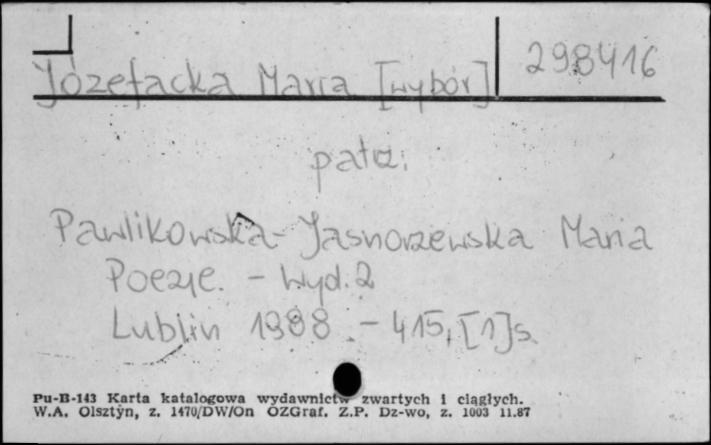 Józefacka Maria [wybór] 298416
patrz:
Pawlikowska-Jasnorzewska Maria
Poezje. - Wyd. 2
Lublin 1988. - 415, [1] s.
Pu-B-143 Karta katalogowa wydawnictw zwartych i ciągłych.
W.A. Olsztyn, z. 1470/DW/On OZGraf. Z.P. Dz-wo, z. 1003 11.87